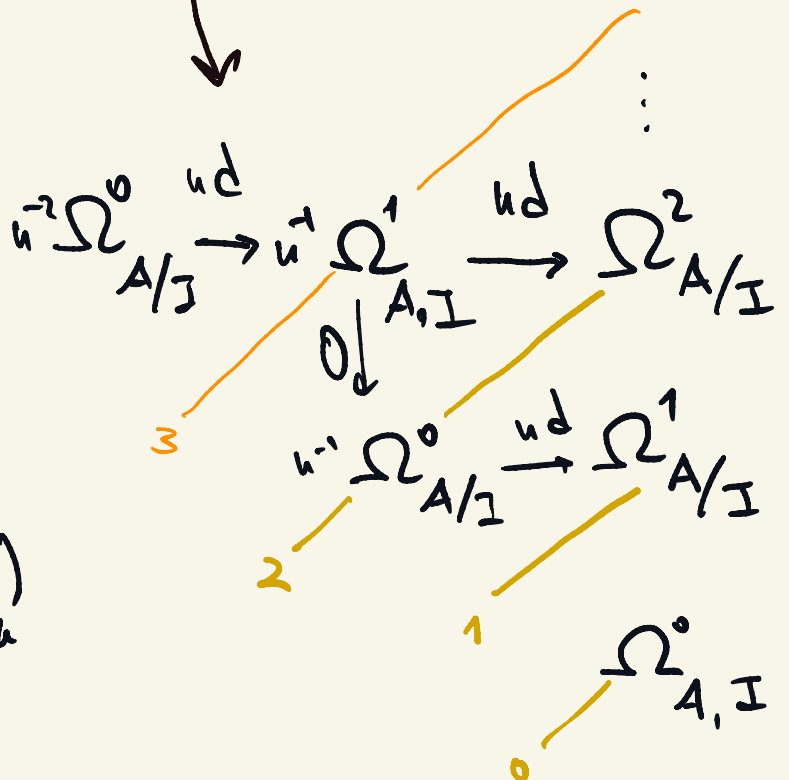 ⋮
u⁻²Ω⁰_{A/I} →^{ud} u⁻¹Ω¹_{A,I} →^{ud} Ω²_{A/I}
0↓
3
u⁻¹Ω⁰_{A/I} →^{ud} Ω¹_{A/I}
2
1
Ω⁰_{A,I}
0